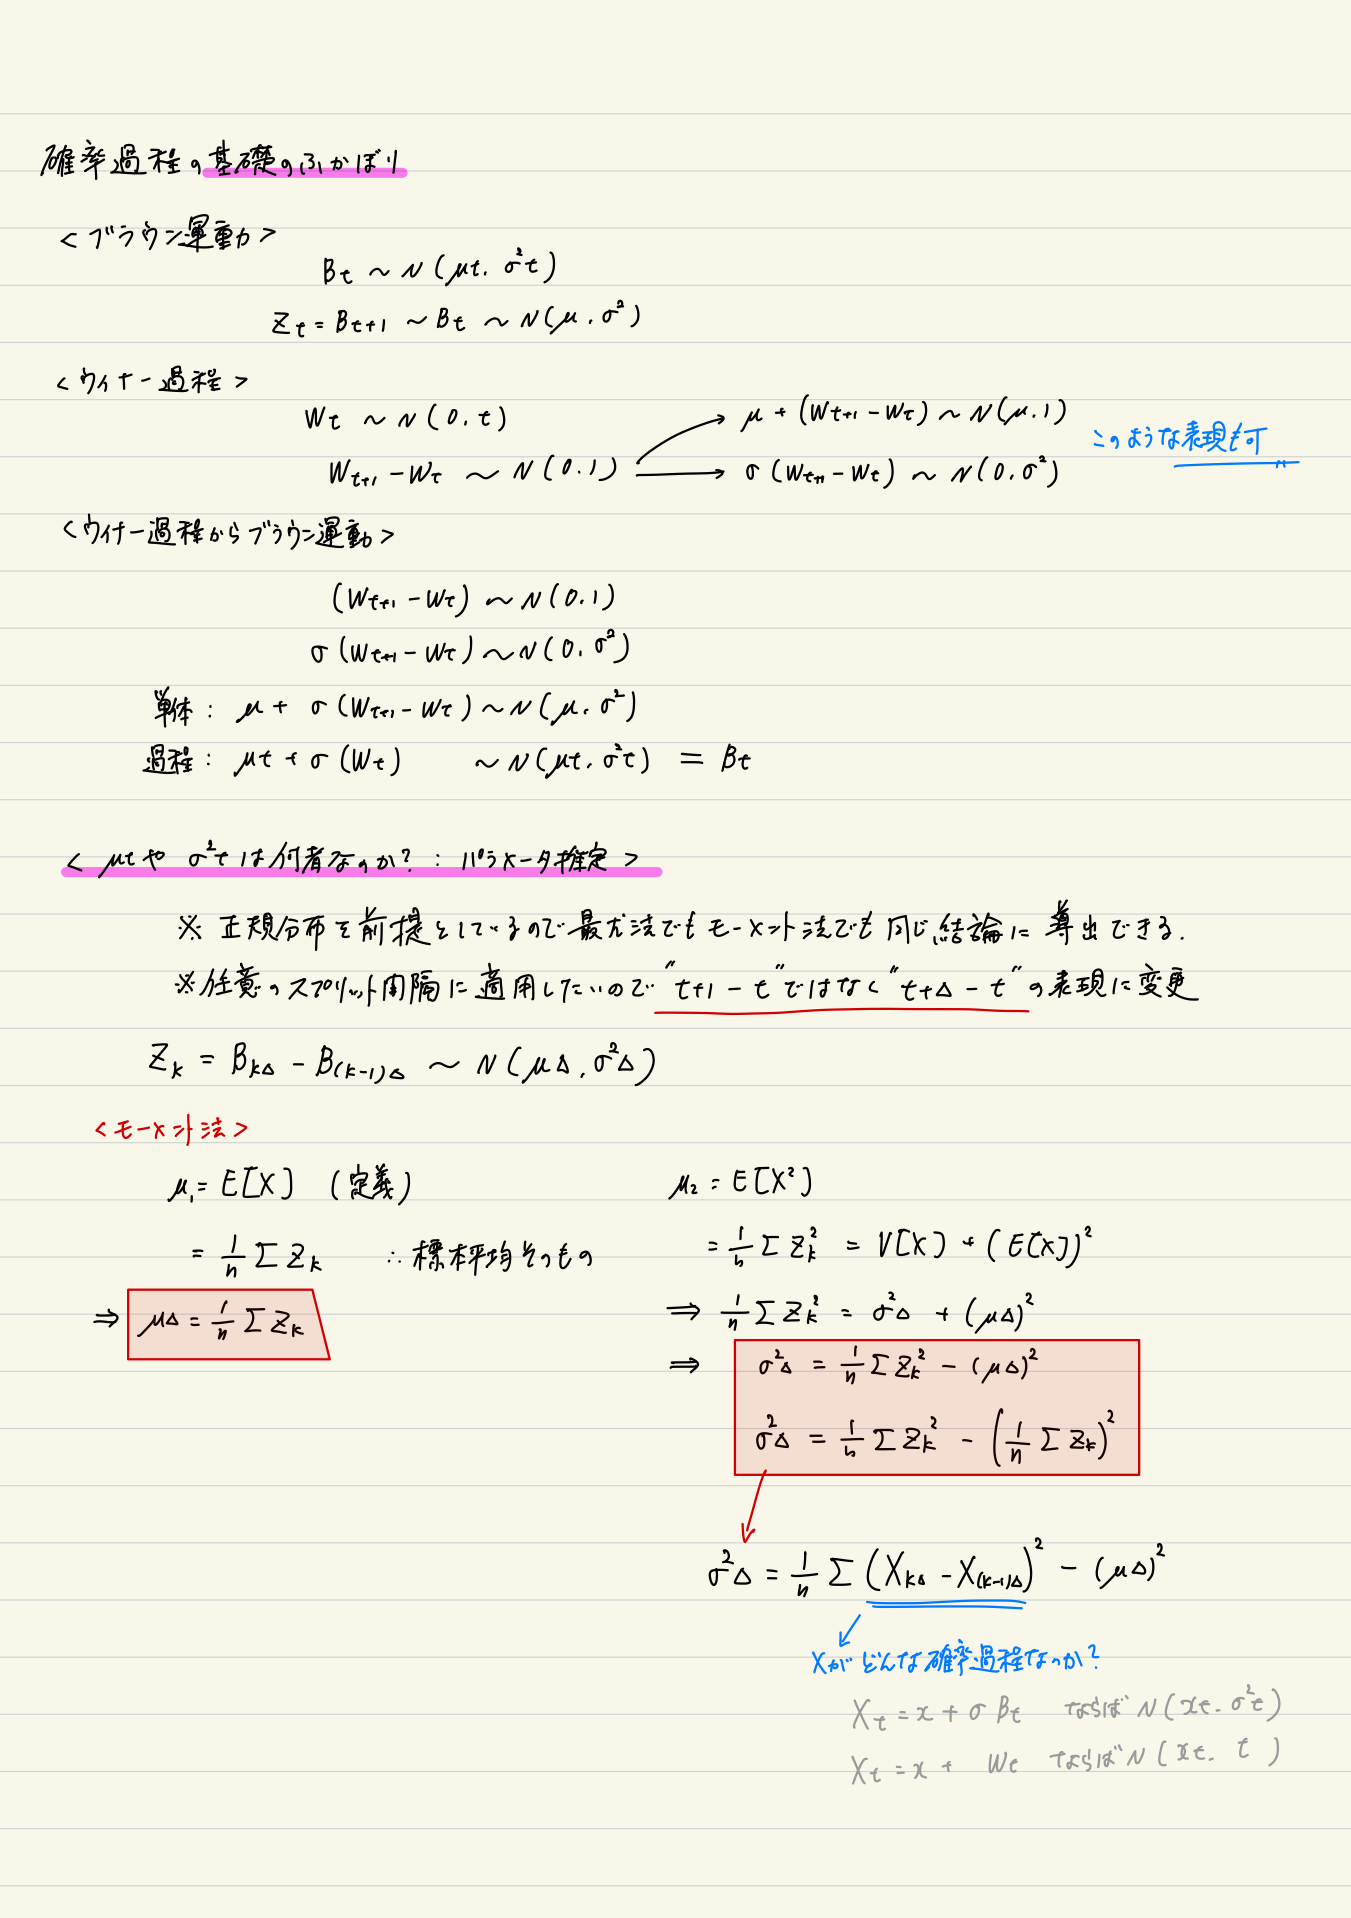 確率過程の基礎のふかぼり
<ブラウン運動>
Bt ~ N(μt, σ²t)
Zt = Bt+1 ~ Bt ~ N(μ, σ²)
<ウィナー過程>
Wt ~ N(0, t)
μ + (Wt+1 - Wt) ~ N(μ, 1)
このような表現も可
Wt+1 - Wt ~ N(0, 1)
σ(Wt+1 - Wt) ~ N(0, σ²)
<ウィナー過程からブラウン運動>
(Wt+1 - Wt) ~ N(0, 1)
σ(Wt+1 - Wt) ~ N(0, σ²)
単体: μ + σ(Wt+1 - Wt) ~ N(μ, σ²)
過程: μt + σ(Wt) ~ N(μt, σ²t) = Bt
<μtや σ²tは何者なのか? : パラメータ推定>
※ 正規分布を前提としているので最尤法でもモーメント法でも同じ結論に導出できる.
※任意のスプリット間隔に適用したいので "t+1 - t"ではなく"t+Δ - t"の表現に変更
Zk = BkΔ - B(k-1)Δ ~ N(μΔ, σ²Δ)
<モーメント法>
μ1 = E[X] (定義)
= 1/n Σ Zk ∴ 標本平均そのもの
⇒ μΔ = 1/n Σ Zk
μ2 = E[X²]
= 1/n Σ Zk² = V[X] + (E[X])²
⇒ 1/n Σ Zk² = σ²Δ + (μΔ)²
⇒ σ²Δ = 1/n Σ Zk² - (μΔ)²
σ²Δ = 1/n Σ Zk² - (1/n Σ Zk)²
σ²Δ = 1/n Σ (XkΔ - X(k-1)Δ)² - (μΔ)²
Xがどんな確率過程なのか?
Xt = x + σ Bt ならば N(xt, σ²t)
Xt = x + Wt ならば N(xt, t)